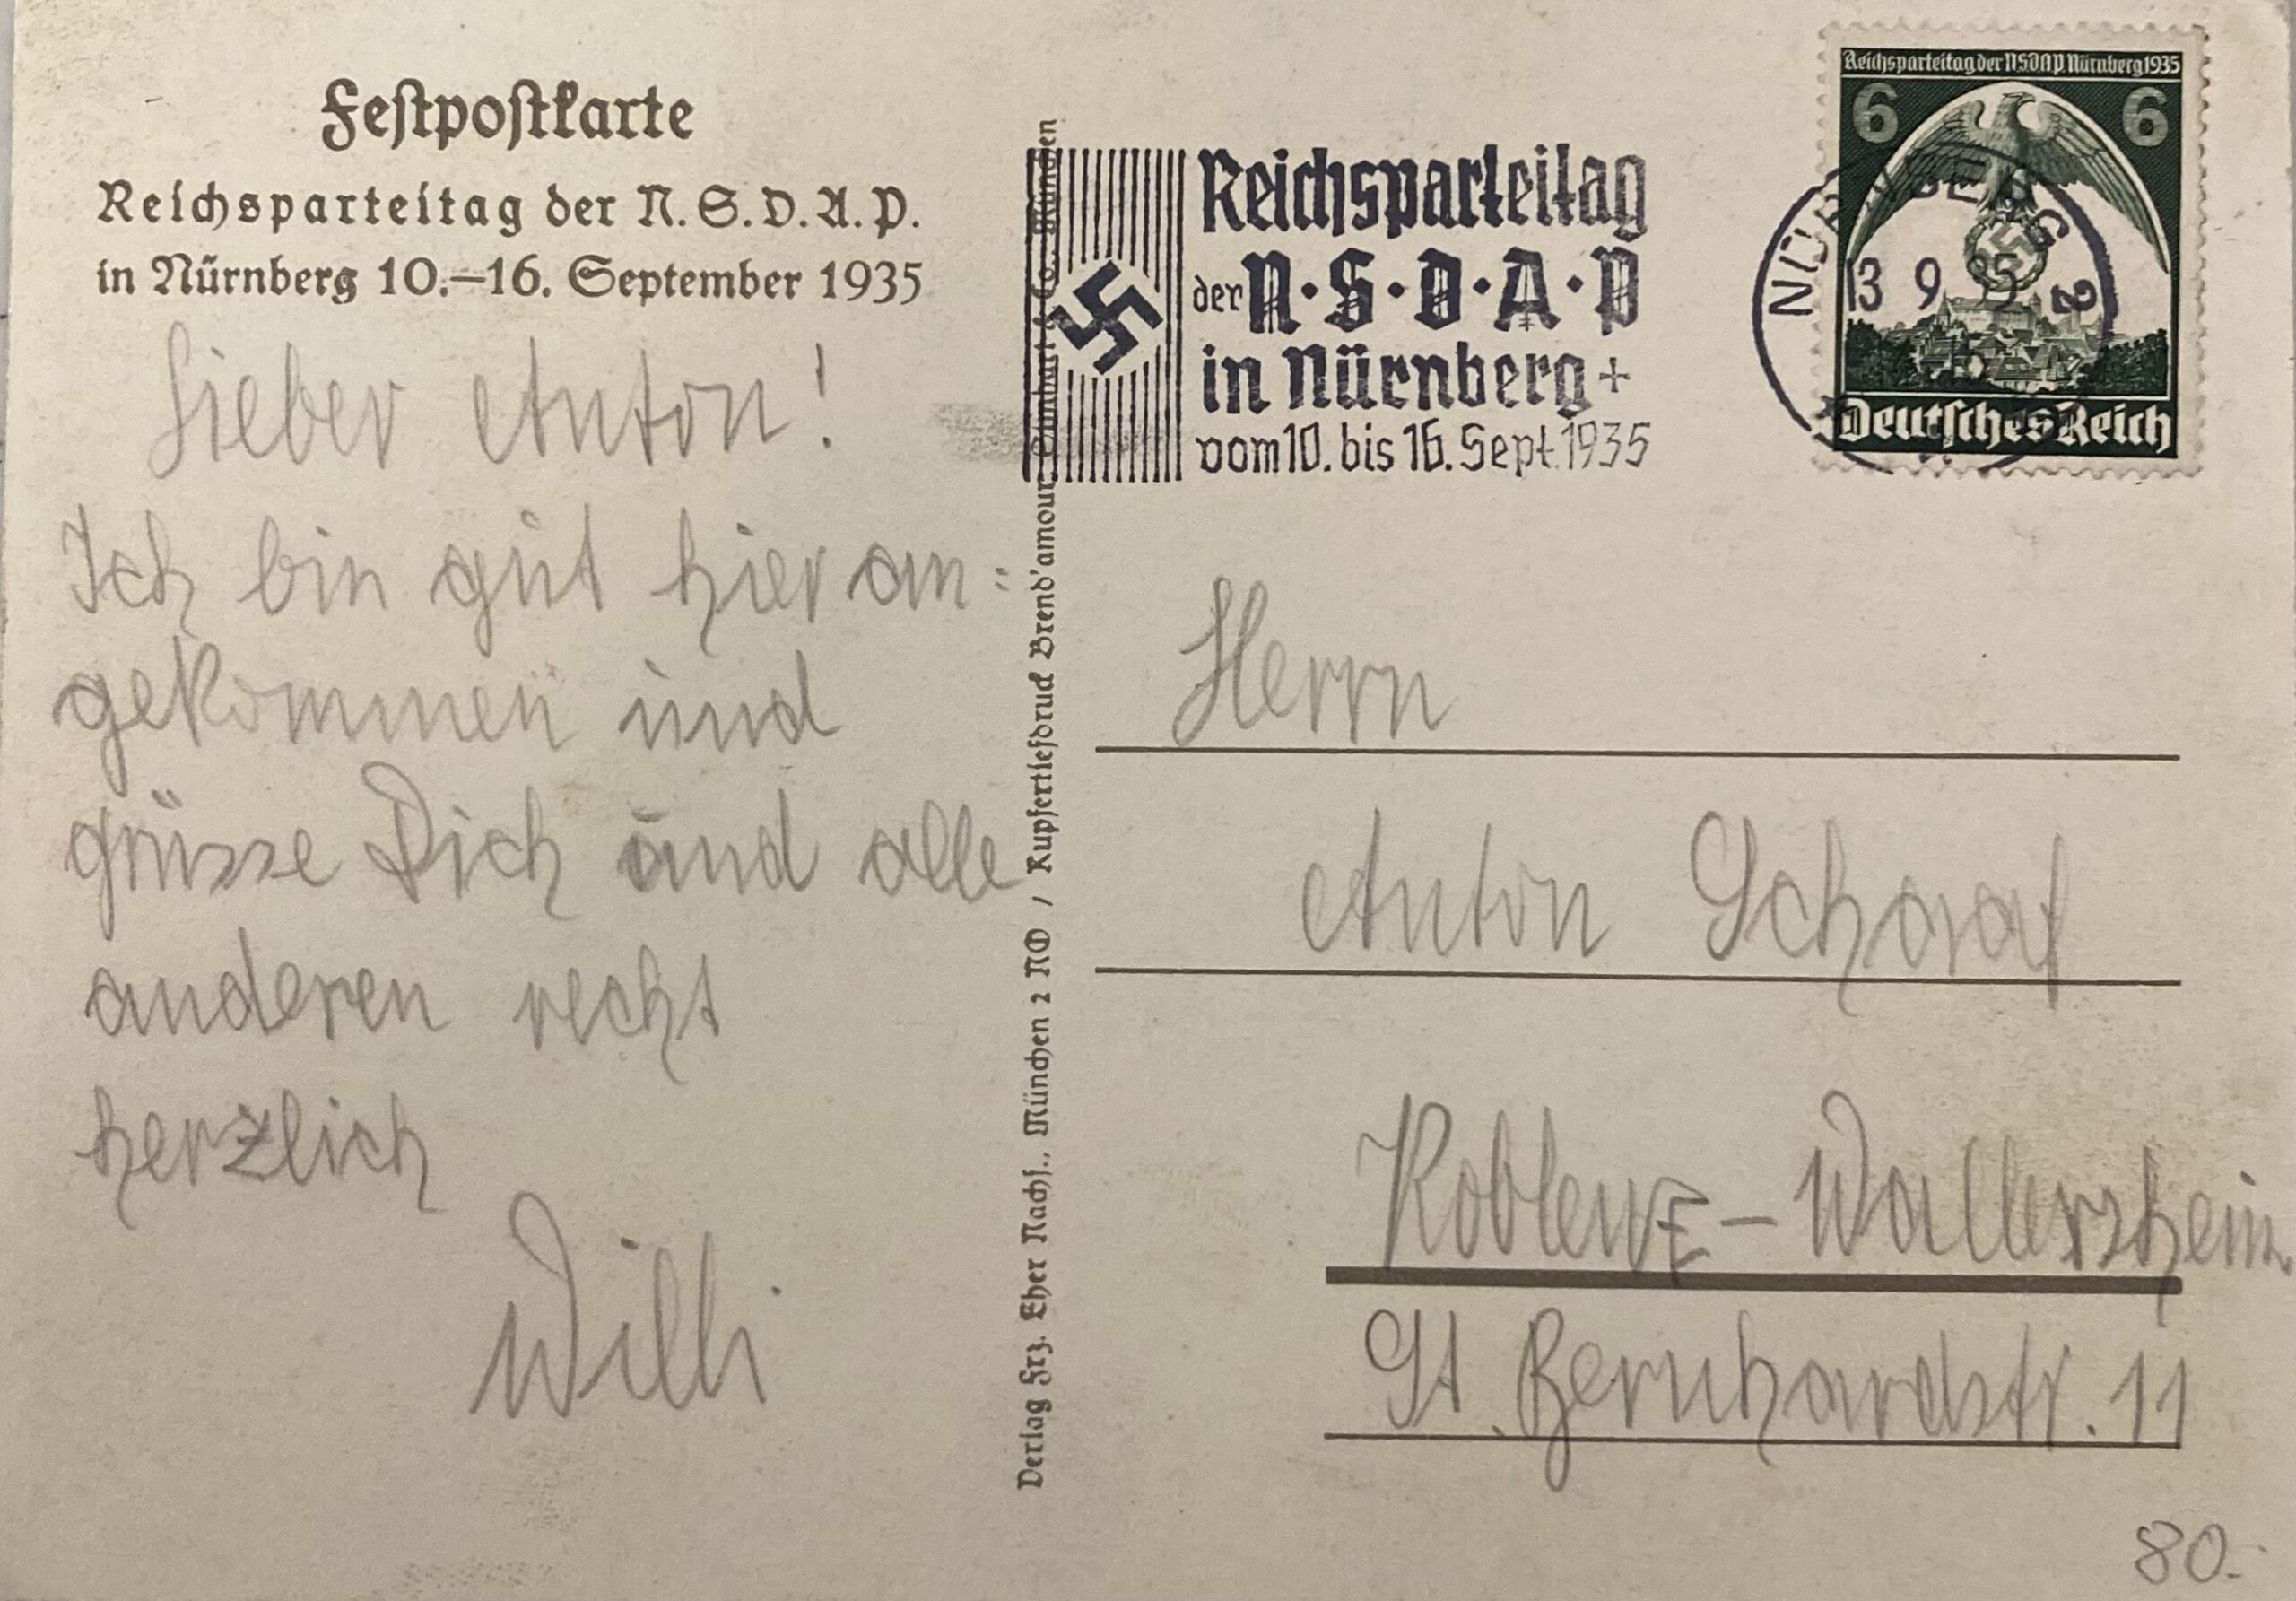 Festpostkarte
Reichsparteitag der N.S.D.A.P.
in Nürnberg 10.—16. September 1935
Lieber Anton!
Ich bin gut hier an=
gekommen und
grüsse Dich und alle
anderen recht
herzlich
Willi
Verlag Frz. Eher Nachf., München 2 NO / Kupfertiefdruck Brend'amour, Simhart & Co., München
Reichsparteitag
der N·S·D·A·P
in Nürnberg +
vom 10. bis 16. Sept. 1935
Reichsparteitag der NSDAP. Nürnberg 1935
6 6
Deutsches Reich
NÜRNBERG 2
13 9 35
Herrn
Anton Scharf
Koblenz – Wallersheim
St. Bernhardstr. 11
80.-